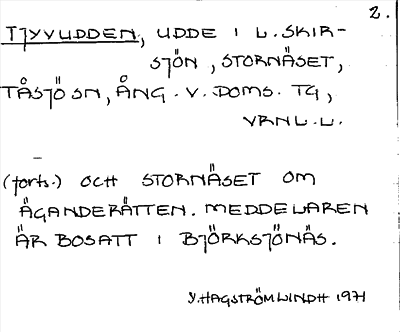 2.
TJYVUDDEN, UDDE I L. SKIR-
SJÖN, STORNÄSET,
TÅSJÖ SN, ÅNG. V. DOMS. TG,
VRNL.L.
(forts.) OCH STORNÄSET OM
ÄGANDERÄTTEN. MEDDELAREN
ÄR BOSATT I BJÖRKSJÖNÄS.
Y. HAGSTRÖM LINDH 1971